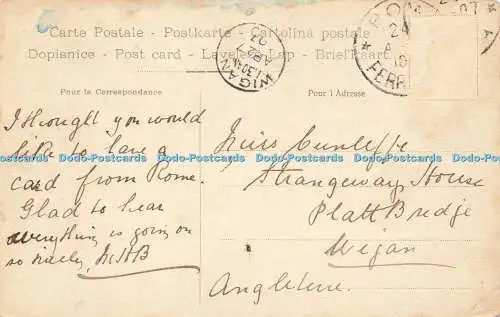 Carte Postale - Postkarte - Cartolina postale
Dopisnice - Post card - Levelező Lap - Briefkaart
WIGAN
1.30 AM
AP 27
07
FERR
Pour la Correspondance
Pour l'Adresse
I thought you would
like to have a
card from Rome.
Glad to hear
everything is going on
so nicely,
Miss Cunliffe
Strangeways House
Platt Bridge
Wigan
Angleterre.
Dodo-Postcards Dodo-Postcards Dodo-Postcards Dodo-Postcards Dodo-Postcards Dodo-Postcards